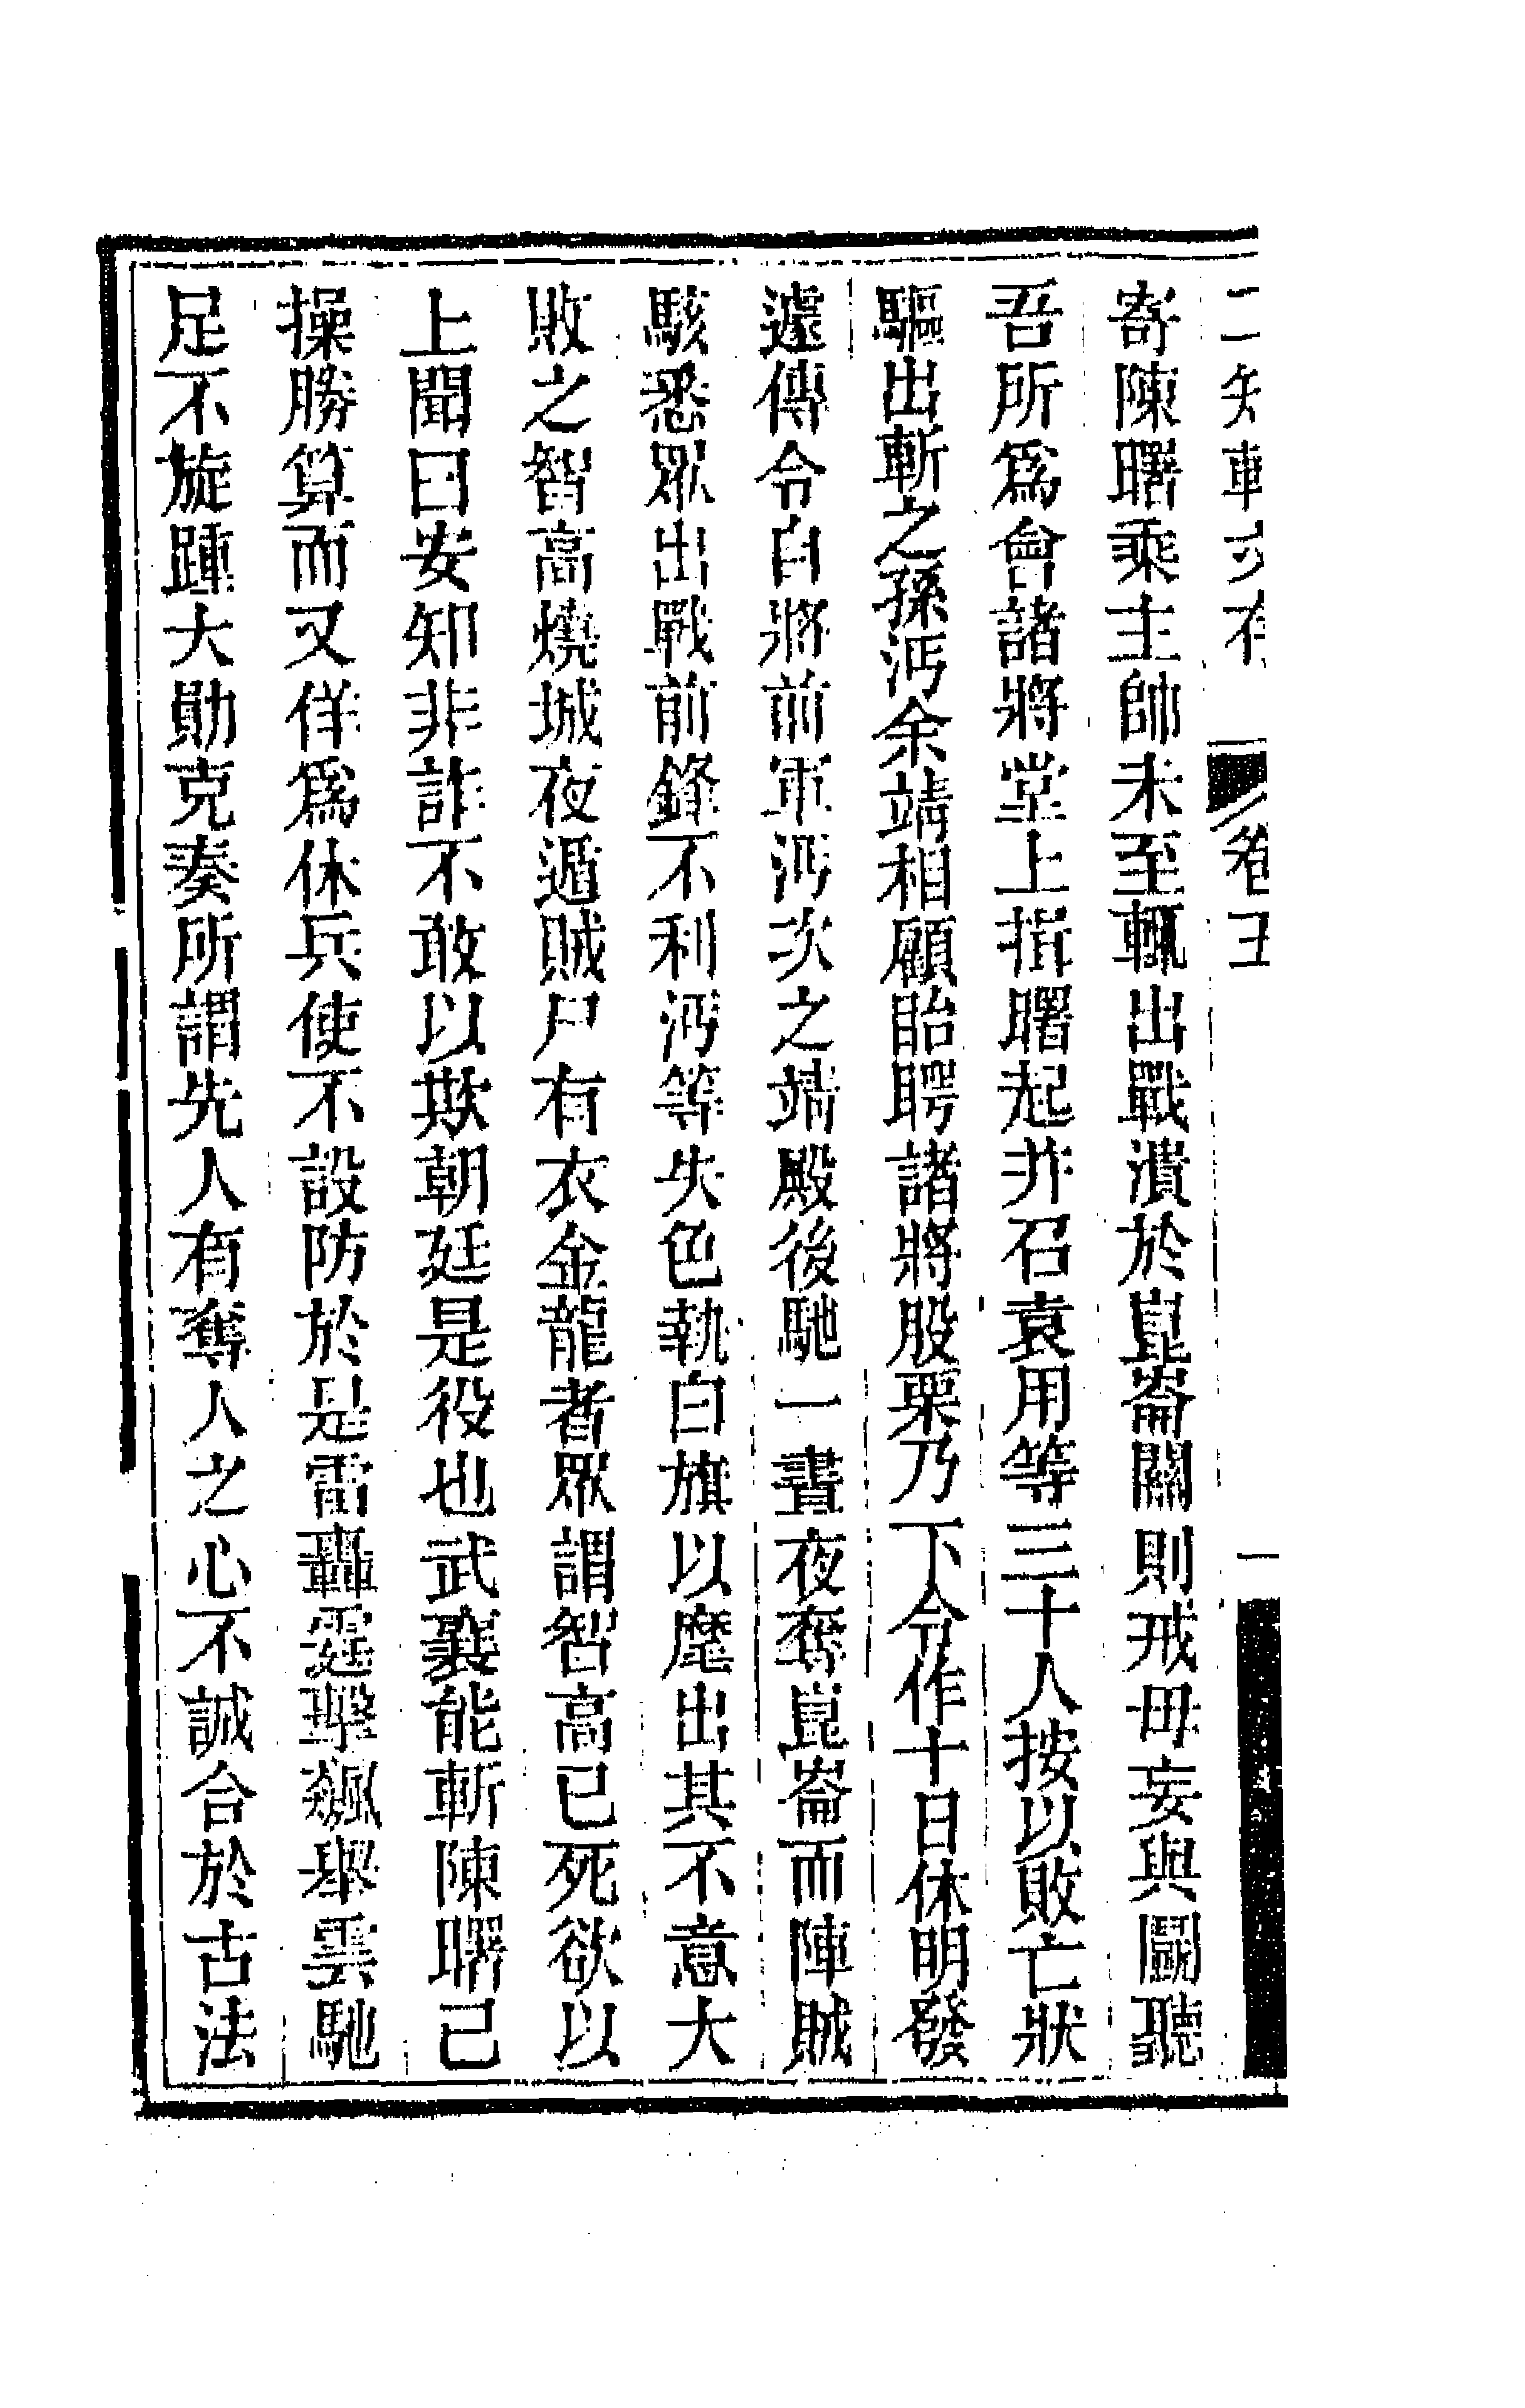 二知軒文存　卷五　一
寄陳曙乘主帥未至輒出戰潰於崑崙關則戒毋妄與鬭聽
吾所爲會諸將堂上揖曙起幷召袁用等三十人按以敗亡狀
驅出斬之孫沔余靖相顧眙愕諸將股栗乃下令作十日休明發
遽傳令自將前軍沔次之靖殿後馳一晝夜奪崑崙而陣賊
駭悉眾出戰前鋒不利沔等失色執白旗以麾出其不意大
敗之智高燒城夜遁賊尸有衣金龍者眾謂智高已死欲以
上聞曰安知非詐不敢以欺朝廷是役也武襄能斬陳曙已
操勝算而又佯爲休兵使不設防於是雷轟霆擊飆舉雲馳
足不旋踵大勛克奏所謂先人有奪人之心不誠合於古法